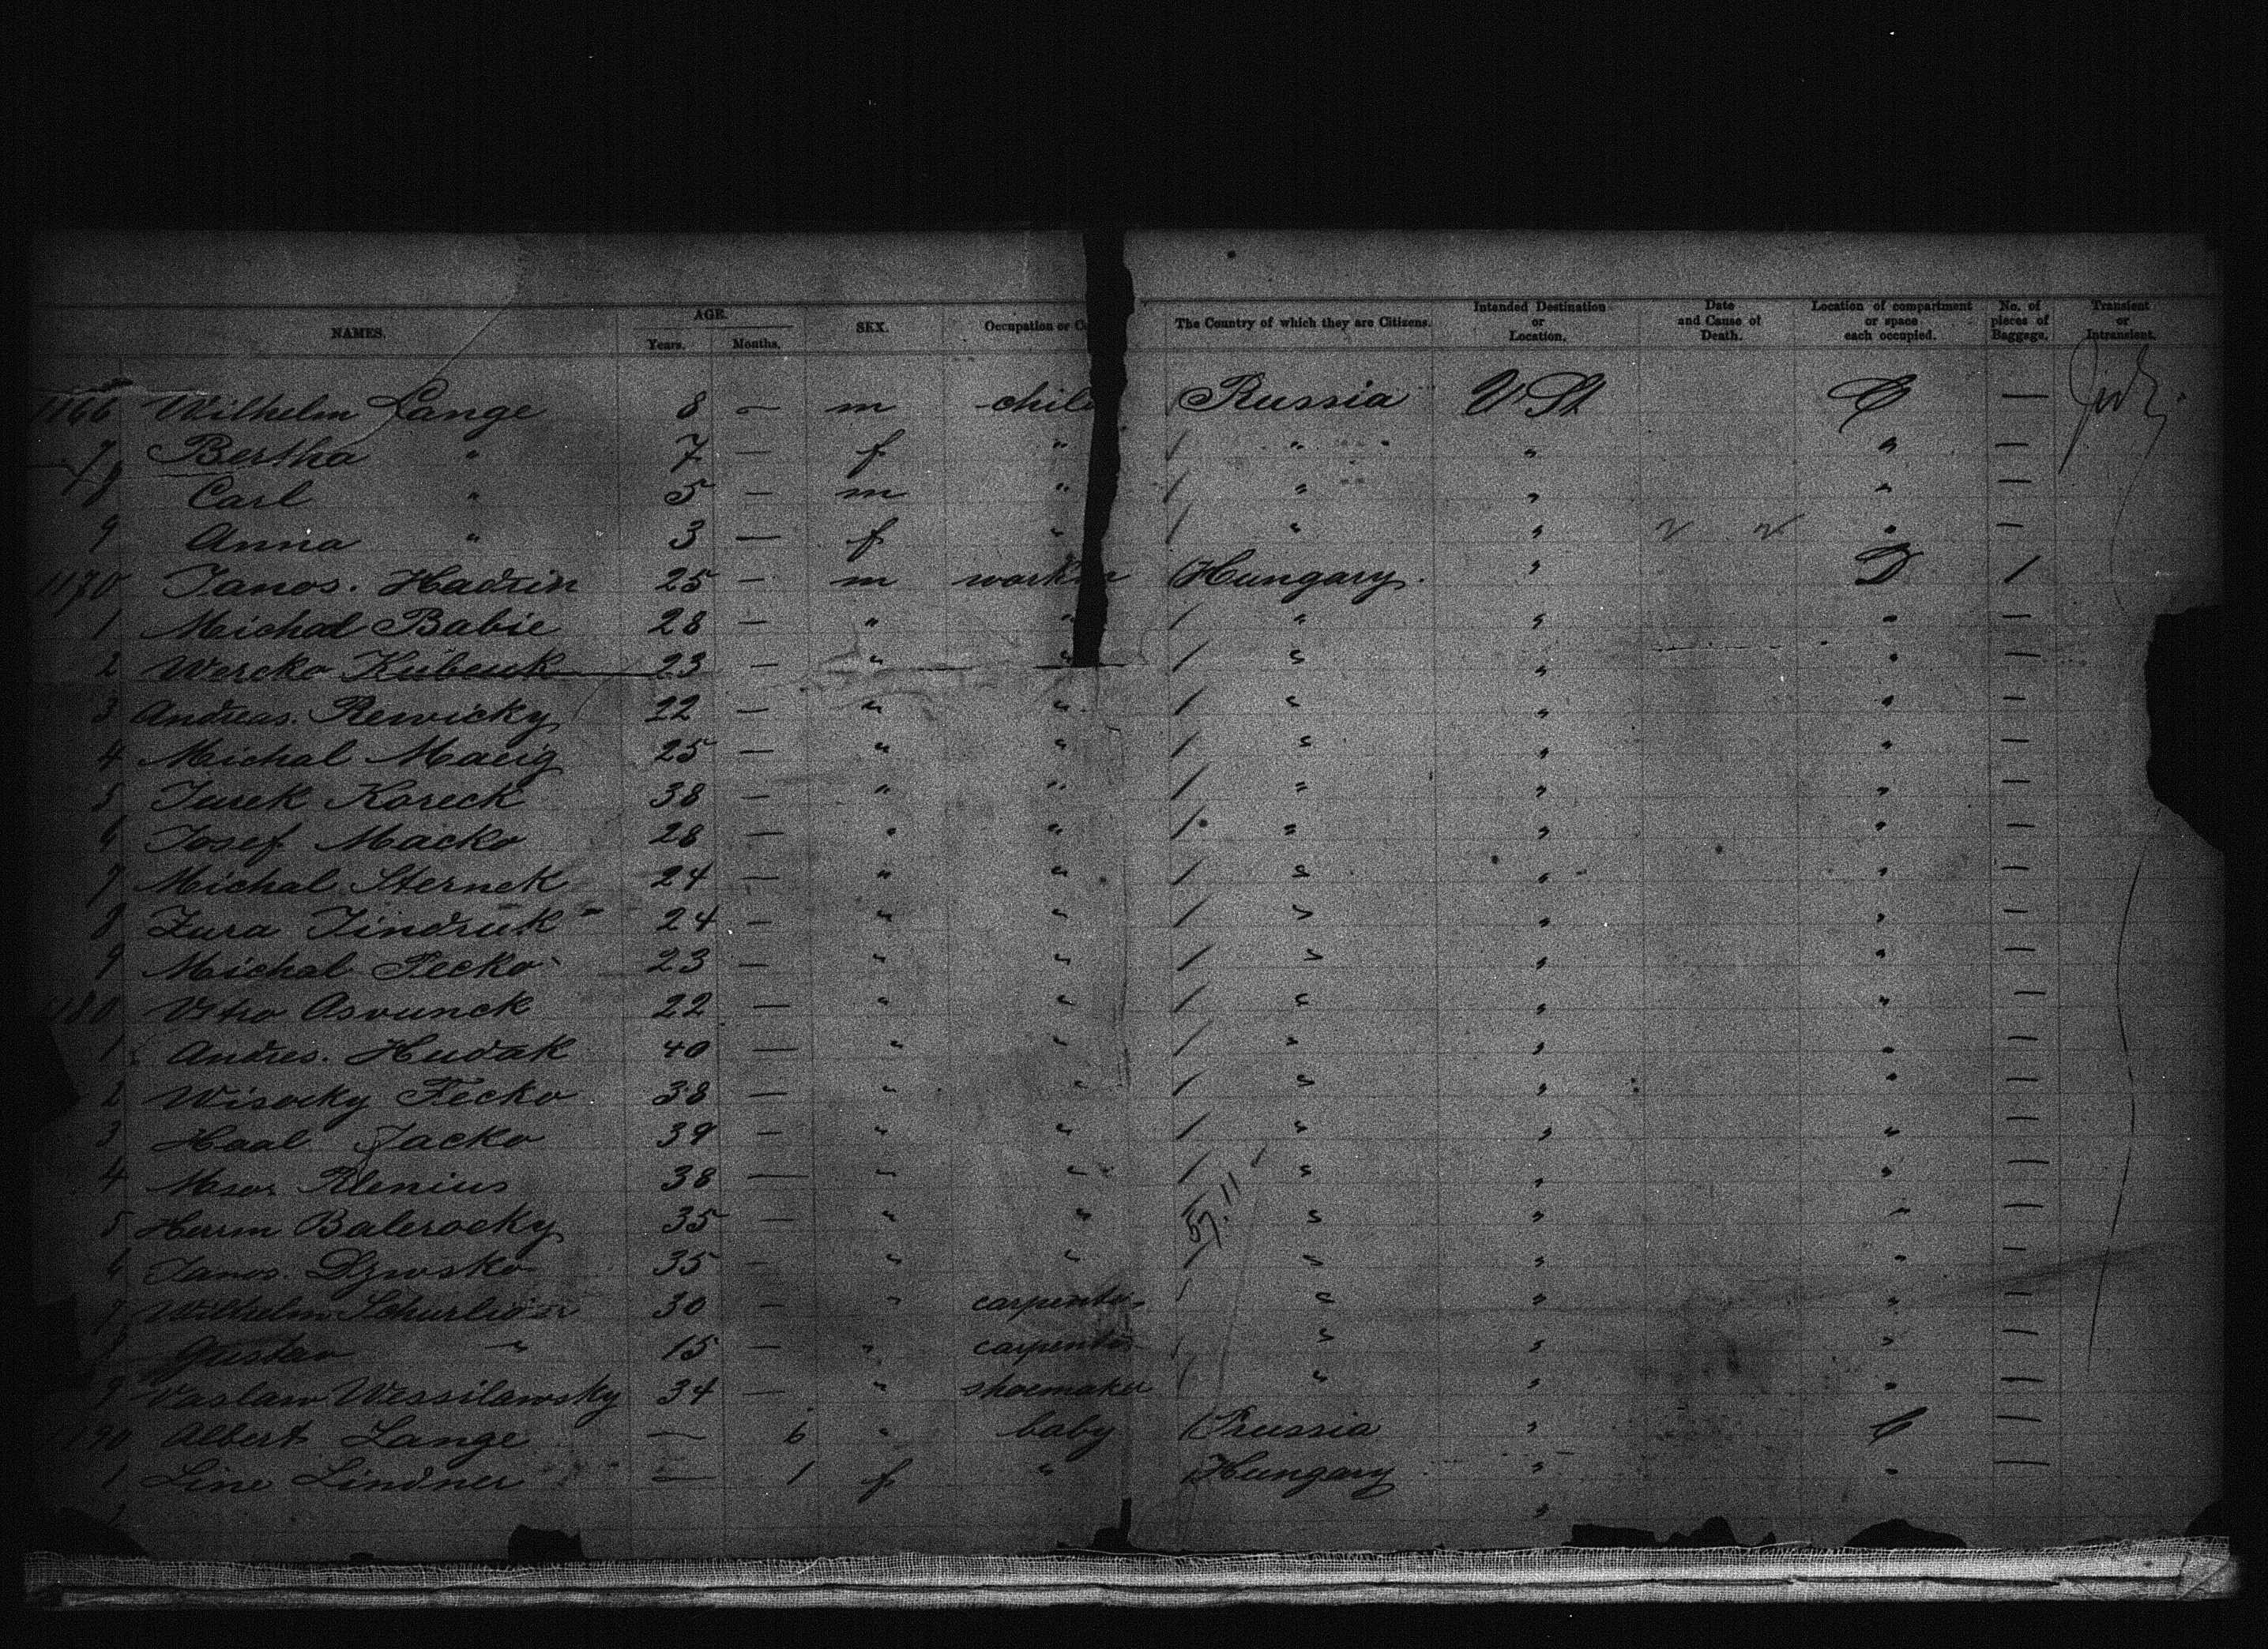 NAMES. AGE. Years. Months. SEX. Occupation or The Country of which they are Citizens. Intended Destination or Location. Date and Cause of Death. Location of compartment or space each occupied. No. of pieces of Baggage. Transient or Intransient.
1166 Wilhelm Lange 8 — m child Russia U St —
7 Bertha " 7 — f " " " " —
8 Carl " 5 — m " " " " —
9 Anna " 3 — f " " " " —
1170 Janos. Hadrin 25 — m worker Hungary. " D 1
1 Michal Babie 28 — " " " " " —
2 Wercko 23 — " " " " " —
3 Andreas. Rewicky 22 — " " " " " —
4 Michal 25 — " " " " " —
5 Jurek Koreck 38 — " " " " " —
6 Josef Macko 28 — " " " " " —
7 Michal Sternek 24 — " " " " " —
8 Zura Jindruk 24 — " " " " " —
9 Michal Fecko 23 — " " " " " —
1180 22 — " " " " " —
1 Andres. Hudak 40 — " " " " " —
2 Wisocky Fecko 38 — " " " " " —
3 Haal Jacko 39 — " " " " " —
4 38 — " " " " " —
5 Herrm Balerocky 35 — " " " " " —
6 Janos. 35 — " " " " " —
7 Wilhelm 30 — " carpenter " " " —
8 Gustav " 15 — " carpenter " " " —
9 Vaslaw Wessilawsky 34 — " shoemaker " " " —
1190 Albert Lange — 6 " baby Prussia " —
1 Line Lindner — 1 f " Hungary " " —
2 "